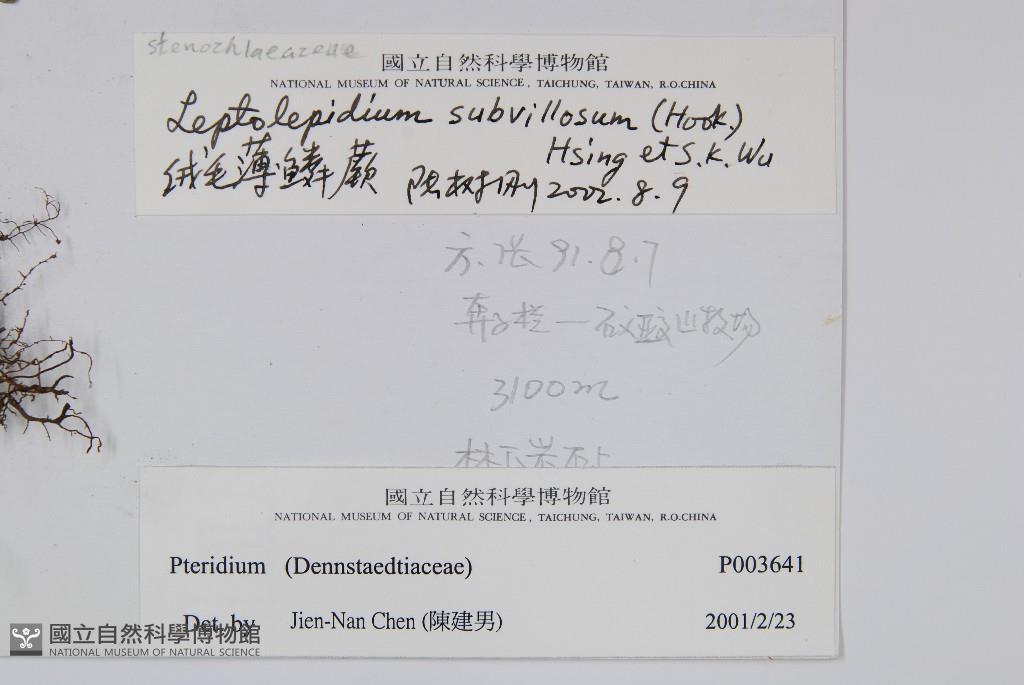 stenochlaeaceae
國立自然科學博物館
NATIONAL MUSEUM OF NATURAL SCIENCE, TAICHUNG, TAIWAN, R.O.CHINA
Leptolepidium subvillosum (Hook.)
Hsing et S.K. Wu
绒毛薄鳞蕨 陈树刚 2002.8.9
方.张 91.8.7
奔子栏—山牧场
3100m
林下岩石上
國立自然科學博物館
NATIONAL MUSEUM OF NATURAL SCIENCE, TAICHUNG, TAIWAN, R.O.CHINA
Pteridium (Dennstaedtiaceae) P003641
Det. by Jien-Nan Chen (陳建男) 2001/2/23
國立自然科學博物館
NATIONAL MUSEUM OF NATURAL SCIENCE